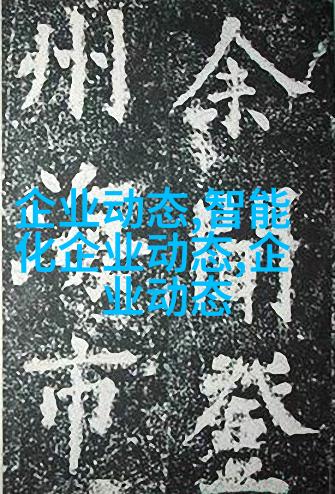 余登
州市
企业动态,智能
化企业动态,企
业动态